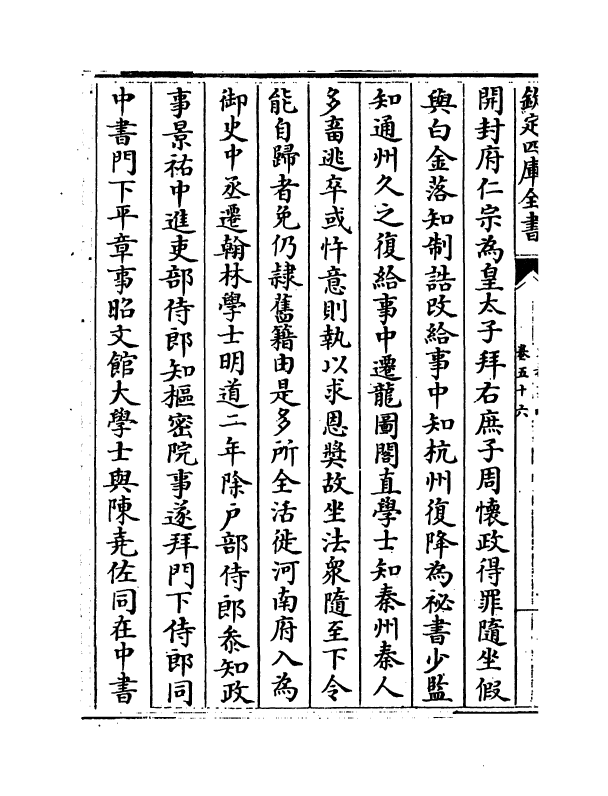 欽定四庫全書
卷五十六
開封府仁宗為皇太子拜右庶子周懷政得罪隨坐假
與白金落知制誥改給事中知杭州復降為祕書少監
知通州久之復給事中遷龍圖閣直學士知秦州秦人
多畜逃卒或忤意則執以求恩奬故坐法衆隨至下令
能自歸者免仍隸舊籍由是多所全活徙河南府入為
御史中丞遷翰林學士明道二年除户部侍郎叅知政
事景祐中進吏部侍郎知樞密院事遂拜門下侍郎同
中書門下平章事昭文館大學士與陳堯佐同在中書